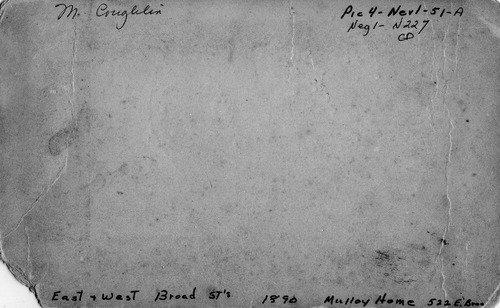 M. Coughlin
Pic 4 - Nev1 - 51 - A
Neg1 - N227
CD
East + West Broad ST's 1890 Mulloy Home 522 E.